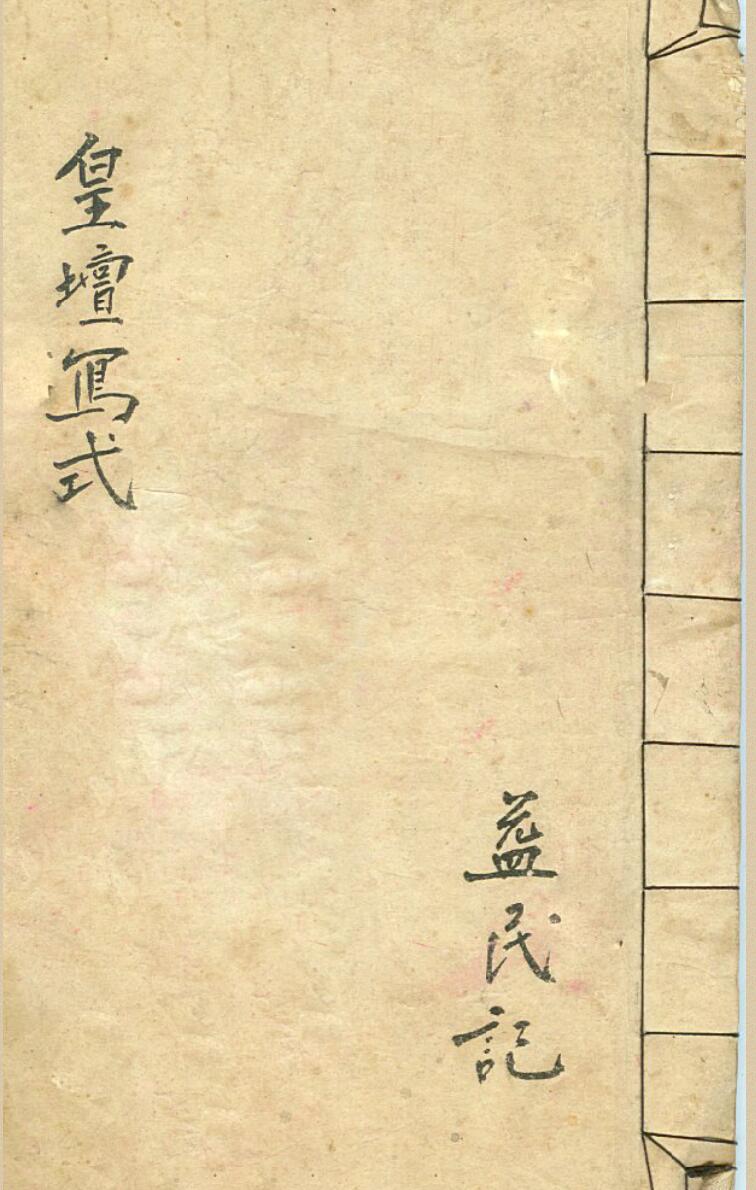 皇壇寫式
益民記